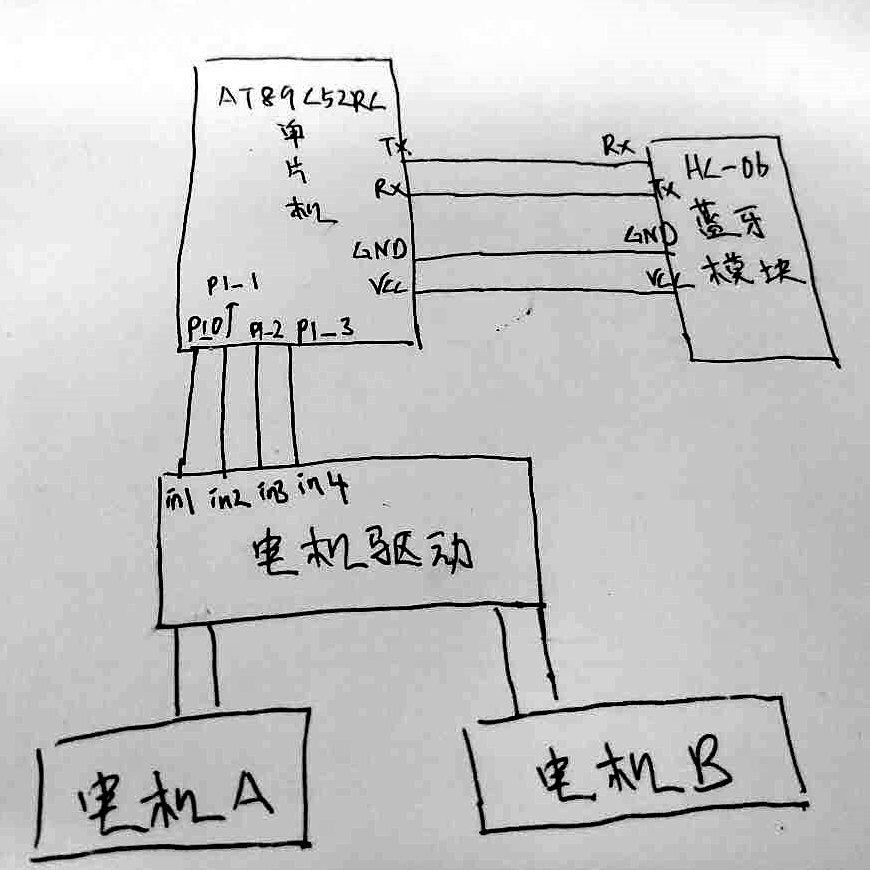 AT89C52RC
单
片
机
TX
RX
GND
VCC
P1-1
P1_0
P1-2
P1-3
RX
TX
GND
VCC
HC-06
蓝牙
模块
in1 in2 in3 in4
电机驱动
电机A
电机B